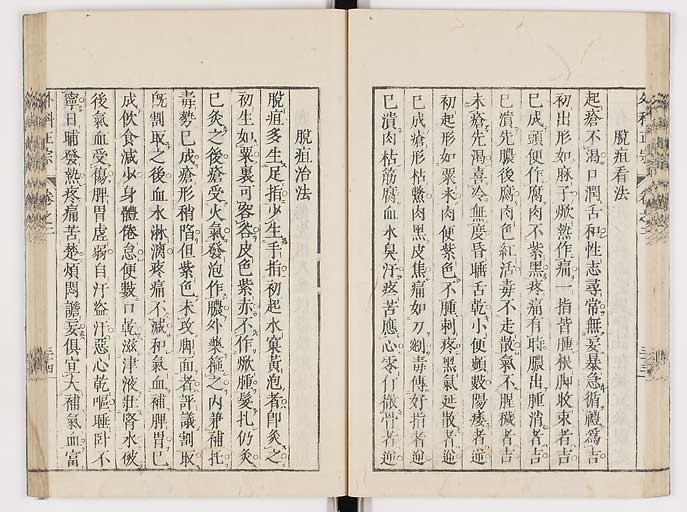 外科正宗
脫疽看法
起瘡不渴口潤舌和性志尋常無妄暴急循禮為吉
初出形如麻子焮熱作痛一指皆腫根腳收束者吉
已成頭便作腐肉不紫黑疼痛有時膿出腫消者吉
已潰先膿後腐肉色紅活毒不走散氣不腥穢者吉
未瘡先渴喜冷無度昏睡舌乾小便頻數陽痿者逆
初起形如粟米肉便紫色不腫刺疼黑氣延散者逆
已成瘡形枯癟肉黑皮焦痛如刀剜毒傳好指者逆
已潰肉枯筋腐血水臭汙疼苦應心零仃徹骨者逆
脫疽治法
脫疽多生足指少生手指初起水窠黃泡者即灸之
初生如粟裏可容谷皮色紫赤不作焮腫髮扎仍灸
已灸之後瘡受火氣發泡作膿外藥箍之內兼補托
毒勢已成瘡形稍陷但紫色未攻腳面者評議割取
既割取之後血水淋漓疼痛不減和氣血補脾胃已
成飲食減少身體倦怠便數口乾滋津液壯腎水彼
後氣血受傷脾胃虛弱自汗盜汗惡心乾嘔睡臥不
寧日晡發熱疼痛苦楚煩悶譫妄俱宜大補氣血富
外科正宗
卷之二
三十四